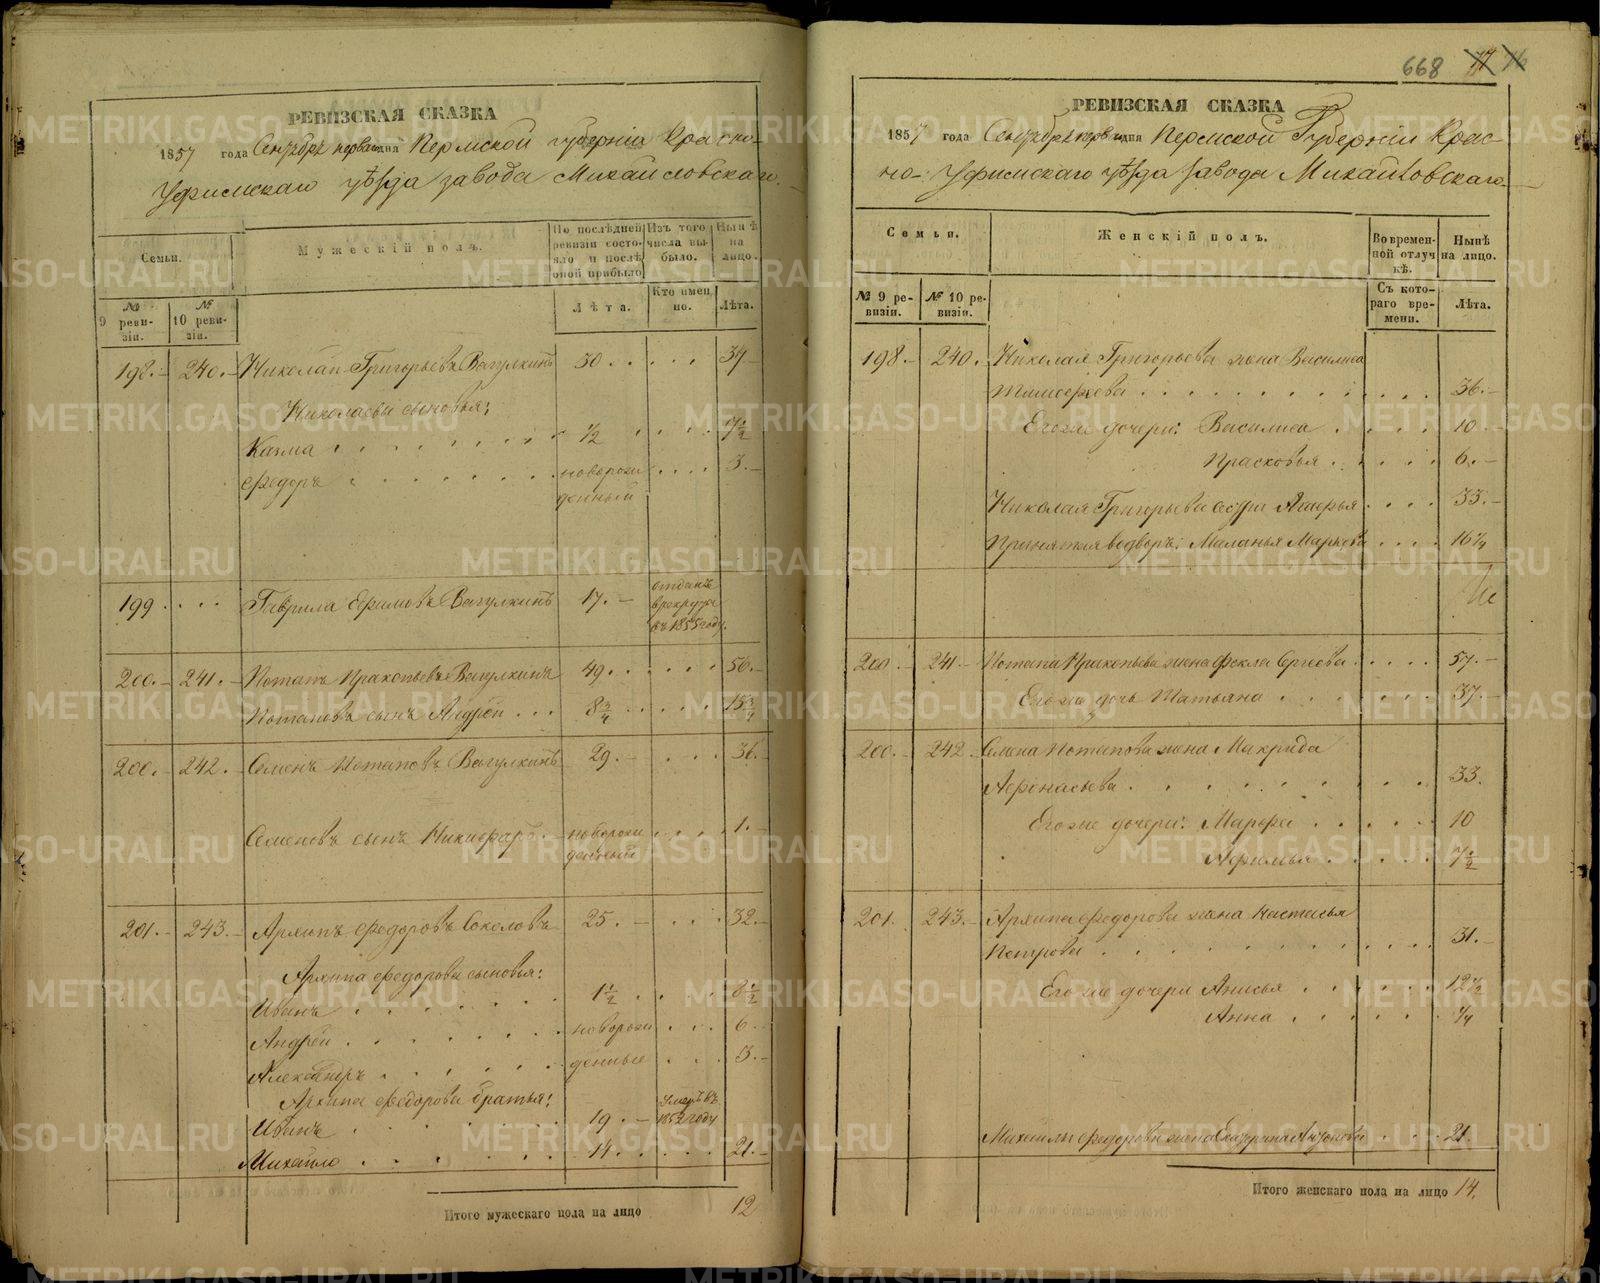 РЕВИЗСКАЯ СКАЗКА
1857 года Сентября первагодня Пермской губерніи Красно-
Уфимскаго уѣзда завода Михайловскаго.
Семьи.
Мужескій полъ.
По послѣдней ревизіи состояло и послѣ оной прибыло
Изъ того числа выбыло.
Нынѣ на лицо.
№ 9 ревизіи.
№ 10 ревизіи.
Лѣта.
Кто именно.
Лѣта.
198. 240. Николай Григорьевъ Вагулкинъ 30 37
Николаевы сыновья:
Казма 1/2 7 1/2
Федоръ новорож 3.
денный
199 Гаврила Ефимовъ Вагулкинъ 17. отданъ
в рекруты
въ 1855 году.
200. 241. Потапъ Пракопьевъ Вагулкинъ 49 56.
Потаповъ сынъ Андрей 8 3/4 15 3/4
200. 242. Семенъ Потаповъ Вагулкинъ 29. 36.
Семеновъ сынъ Никифаръ новорож 1.
денный
201. 243. Архипъ Федоровъ Соколовъ 25. 32.
Архипа Федорова сыновья:
Иванъ 1 1/2 8 1/2
Андрей новорож 6
Александръ денные 3.
Архипа Федорова братья:
Иванъ 19. Умеръ въ
1852 году
Михайло 14 21.
Итого мужескаго пола на лицо 12
668 17
РЕВИЗСКАЯ СКАЗКА
1857 года Сентября первагодня Пермской Губерніи Крас-
но-Уфимскаго уѣзда завода Михайловскаго
Семьи.
Женскій полъ.
Во временной отлучкѣ.
Нынѣ на лицо.
№ 9 ревизіи.
№ 10 ревизіи.
Съ котораго времени.
Лѣта.
198 240. Николая Григорьева жена Василиса
Тимофеева 36.
Егоже дочери: Василиса 10
Прасковья 6.
Николая Григорьева сестра Агафья 33.
Принятая водворъ: Маланья Маркова 16 1/4
200 241 Потапа Пракопьева жена Фекла Сергеева 57.
Егоже дочь Татьяна 37.
200. 242. Семена Потапова жена Макрида
Афонасьева 33.
Егоже дочери: Марфа 10
Афимья 7 1/2
201. 243. Архипа Федорова жена Настасья
Петрова 31.
Егоже дочери Анисья 12 1/2
Анна 1/4
Михайлы Федорова жена Екатерина Антонова 21.
Итого женскаго пола на лицо 14.
METRIKI.GASO-URAL.RU